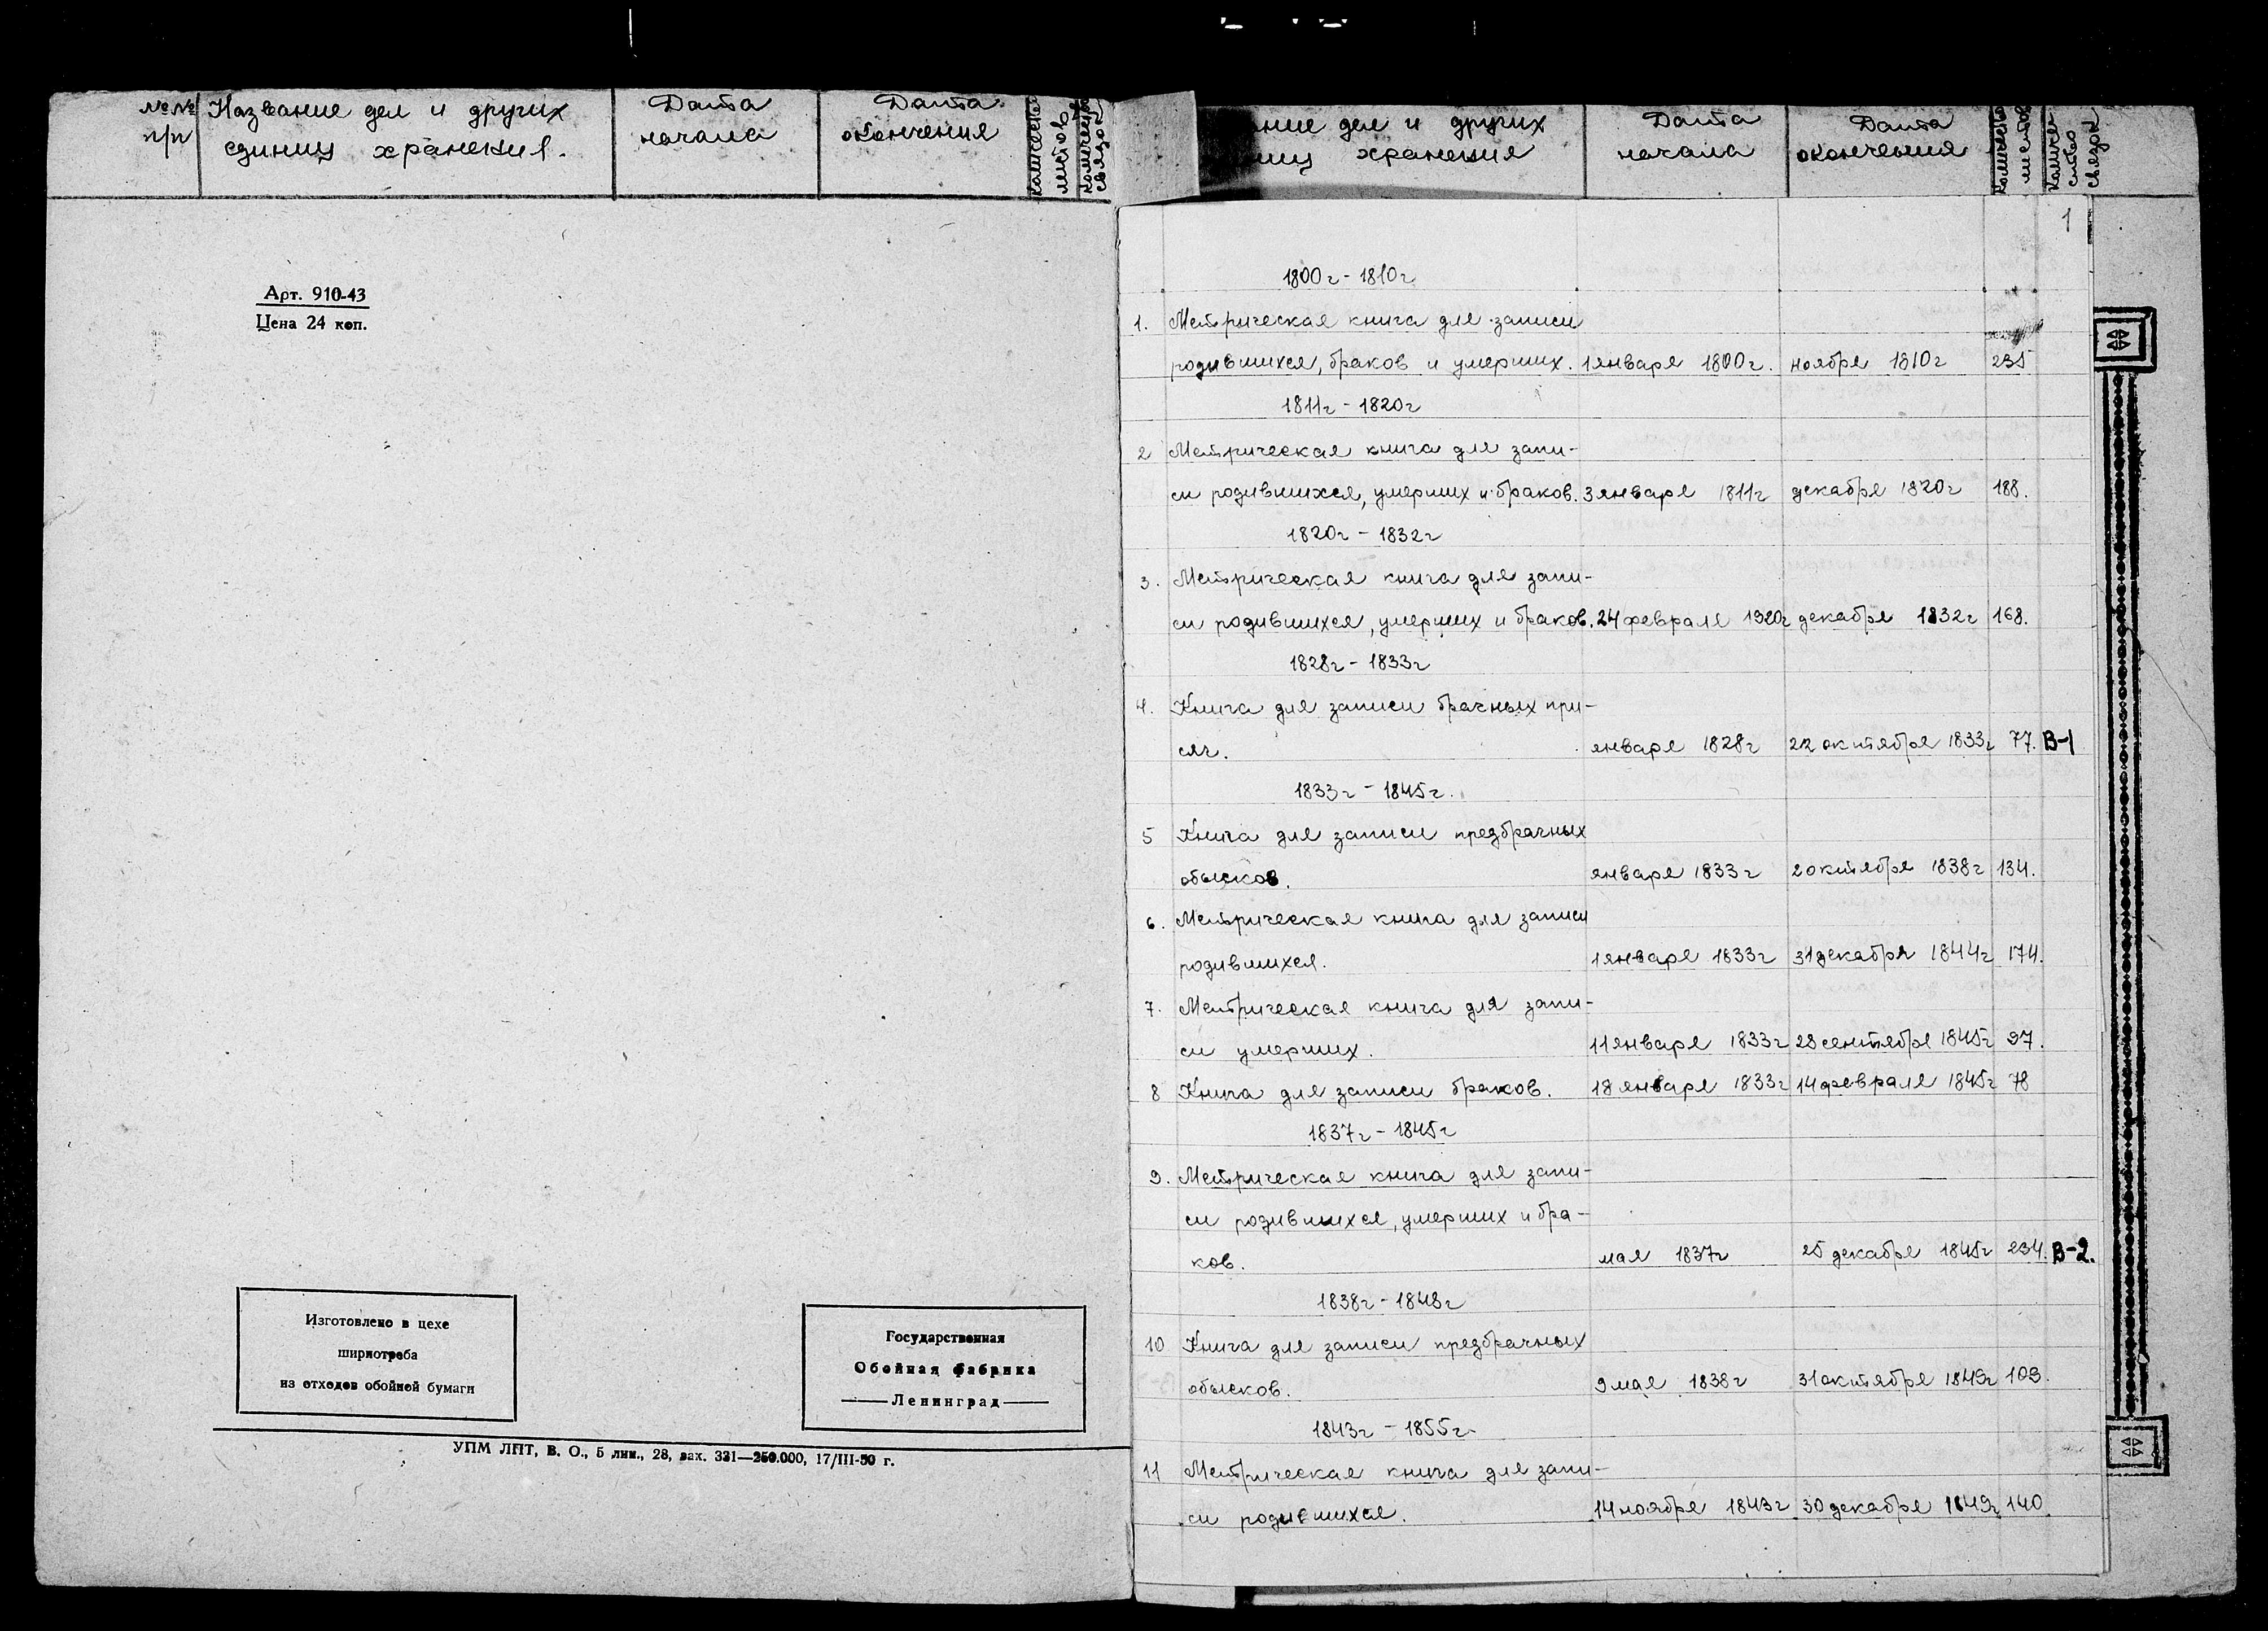 №№ п/п | Название дел и других единиц хранения. | Дата начала | Дата окончения | количество листов | количество связок
Арт. 910-43
Цена 24 коп.
Изготовлено в цехе
ширпотреба
из отходов обойной бумаги
Государственная
Обойная фабрика
Ленинград
УПМ ЛПТ, В. О., 5 лин., 28, зак. 331—250.000, 17/III-50 г.
ние дел и других
ниц хранения | Дата начала | Дата окончения | количество листов | количество связок
1
1800г - 1810г
1. Метрическая книга для записи
родившихся, браков и умерших. 1 января 1800г. ноября 1810г 235
1811г - 1820г
2 Метрическая книга для запи-
си родившихся, умерших и браков. 3 января 1811г декабря 1820г 188.
1820г - 1832г
3. Метрическая книга для запи-
си родившихся, умерших и браков. 24 февраля 1920г декабря 1832г 168.
1828г - 1833г
4. Книга для записи брачных при-
сяг. января 1828г 22 октября 1833г 77. В-1
1833г - 1845г.
5 Книга для записи предбрачных
обысков. января 1833г 20 октября 1838г 134.
6. Метрическая книга для записи
родившихся. 1 января 1833г 31 декабря 1844г 174.
7. Метрическая книга для запи-
си умерших. 11 января 1833г 28 сентября 1845г 97.
8 Книга для записи браков. 18 января 1833г 14 февраля 1845г 78
1837г - 1845г
9. Метрическая книга для запи-
си родившихся, умерших и бра-
ков. мая 1837г 25 декабря 1845г 234. В-2.
1838г - 1848г
10 Книга для записи предбрачных
обысков. 9 мая 1838г 31 октября 1849г 103.
1843г - 1855г.
11 Метрическая книга для запи-
си родившихся. 14 ноября 1843г 30 декабря 1849г 140.